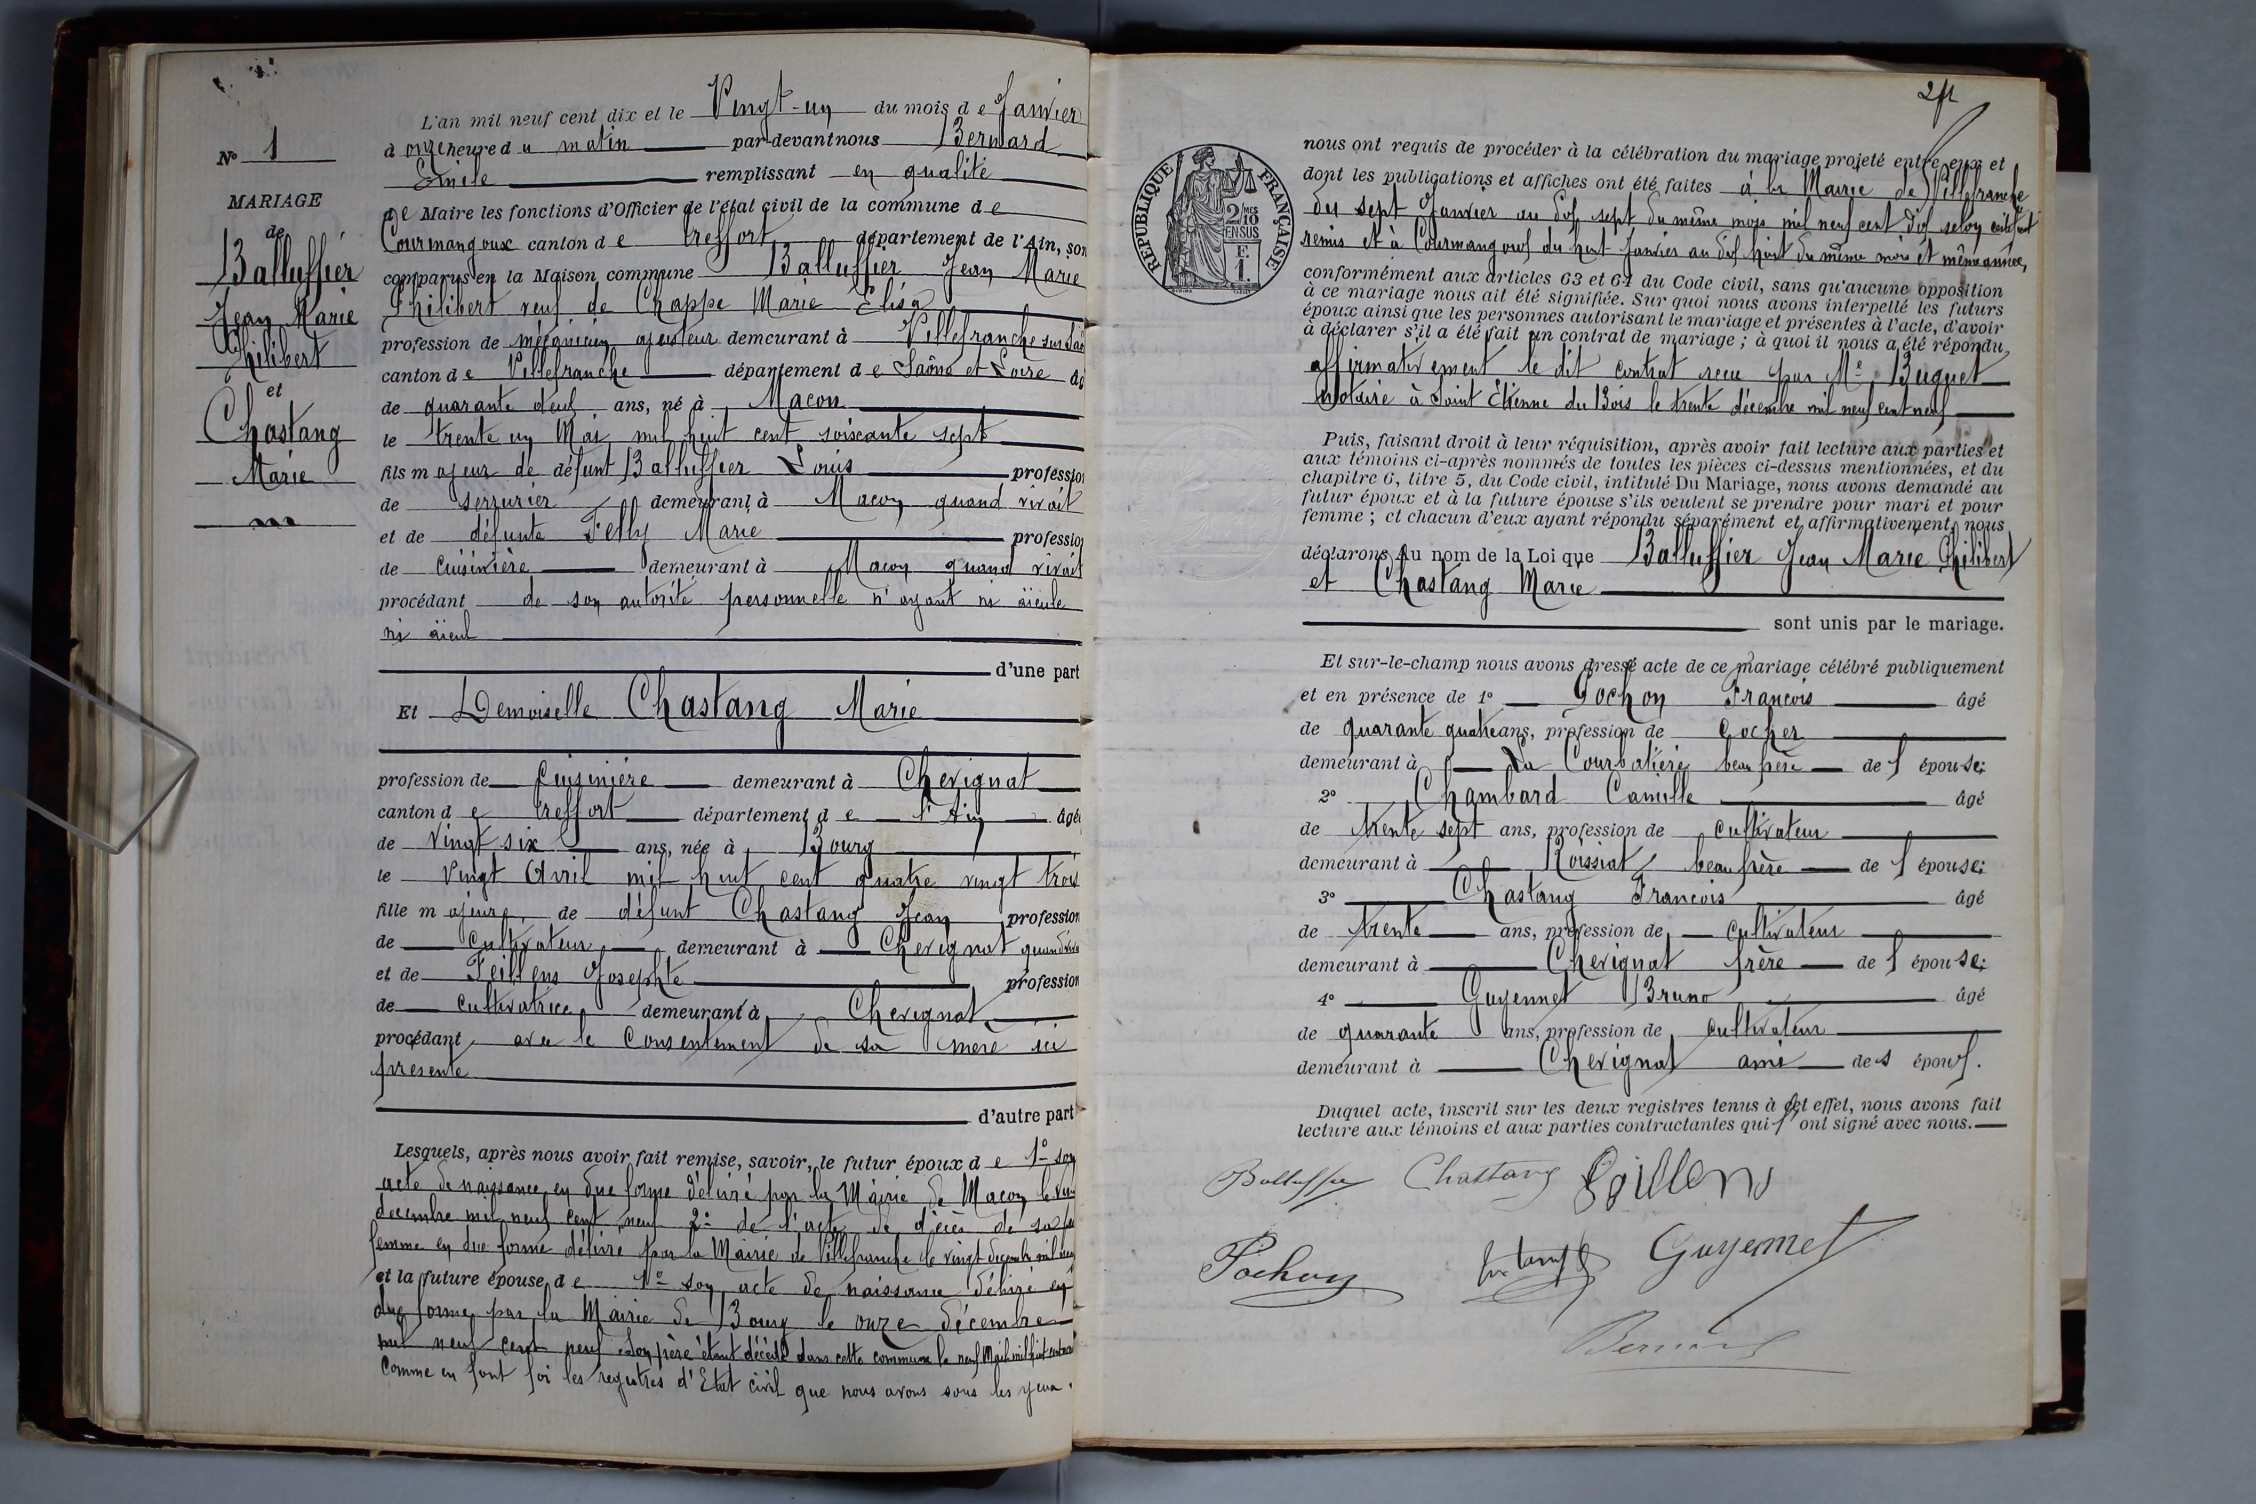 N° 1
MARIAGE
de
Balluffier
Jean Marie
Philibert
et
Chastang
Marie
L'an mil neuf cent dix et le Vingt-un du mois de Janvier
à onze heure du matin par-devant nous Bernard
Emile remplissant en qualité
de Maire les fonctions d'Officier de l'état civil de la commune de
Courmangoux canton de Treffort département de l'Ain, son
comparus en la Maison commune Balluffier Jean Marie
Philibert veuf de Chappe Marie Elisa
profession de mécanicien ajusteur demeurant à Villefranche sur Saô
canton de Villefranche département de Saône et Loire
de quarante deux ans, né à Macon
le trente un Mai mil huit cent soixante sept
fils majeur de défunt Balluffier Louis profession
de serrurier demeurant à Macon quand vivait
et de défunte Felly Marie profession
de cuisinière demeurant à Macon quand vivait
procédant de son autorité personnelle n'ayant ni aïeule
ni aïeul
d'une part
Et Demoiselle Chastang Marie
profession de Cuisinière demeurant à Chevignat
canton de Treffort département de l'Ain âgée
de vingt six ans, née à Bourg
le vingt Avril mil huit cent quatre vingt trois
fille majeure de défunt Chastang Jean profession
de cultivateur demeurant à Chevignat quand vivait
et de Feillens Josephte profession
de cultivatrice demeurant à Chevignat
procédant avec le consentement de sa mère ici
présente
d'autre part
Lesquels, après nous avoir fait remise, savoir, le futur époux de 1° son
acte de naissance en due forme délivré par la Mairie de Macon le
décembre mil neuf cent neuf 2° de l'acte de décès de sa
femme en due forme délivré par la Mairie de Villefranche le vingt décembre mil neuf
et la future épouse de 1° son acte de naissance délivré en
due forme par la Mairie de Bourg le onze décembre
mil neuf cent neuf. Son père étant décédé dans cette commune le neuf mil huit cent
comme en font foi les registres d'Etat civil que nous avons sous les yeux.
RÉPUBLIQUE FRANÇAISE
2/10
EN SUS
1 F.
nous ont requis de procéder à la célébration du mariage projeté entre eux et
dont les publications et affiches ont été faites à la Mairie de Villefranche
du sept Janvier au dix sept du même mois mil neuf cent dix selon certificat
remis et à Courmangoux du huit Janvier au dix huit du même mois et même année,
conformément aux articles 63 et 64 du Code civil, sans qu'aucune opposition
à ce mariage nous ait été signifiée. Sur quoi nous avons interpellé les futurs
époux ainsi que les personnes autorisant le mariage et présentes à l'acte, d'avoir
à déclarer s'il a été fait un contrat de mariage ; à quoi il nous a été répondu
affirmativement le dit contrat reçu par Me Buguet
Notaire à Saint Etienne du Bois le trente décembre mil neuf cent neuf
Puis, faisant droit à leur réquisition, après avoir fait lecture aux parties et
aux témoins ci-après nommés de toutes les pièces ci-dessus mentionnées, et du
chapitre 6, titre 5, du Code civil, intitulé Du Mariage, nous avons demandé au
futur époux et à la future épouse s'ils veulent se prendre pour mari et pour
femme ; et chacun d'eux ayant répondu séparément et affirmativement, nous
déclarons au nom de la Loi que Balluffier Jean Marie Philibert
et Chastang Marie
sont unis par le mariage.
Et sur-le-champ nous avons dressé acte de ce mariage célébré publiquement
et en présence de 1° Pochon François âgé
de quarante quatre ans, profession de cocher
demeurant à La Courbatière beau frère de l'épouse;
2° Chambard Camille âgé
de trente sept ans, profession de cultivateur
demeurant à Roissiat beau frère de l'épouse;
3° Chastang François âgé
de trente ans, profession de cultivateur
demeurant à Chevignat frère de l'épouse;
4° Guyennet Bruno âgé
de quarante ans, profession de cultivateur
demeurant à Chevignat ami des époux.
Duquel acte, inscrit sur les deux registres tenus à cet effet, nous avons fait
lecture aux témoins et aux parties contractantes qui ont signé avec nous.
Balluffier Chastang Feillens
Pochon Guyennet
Bernard